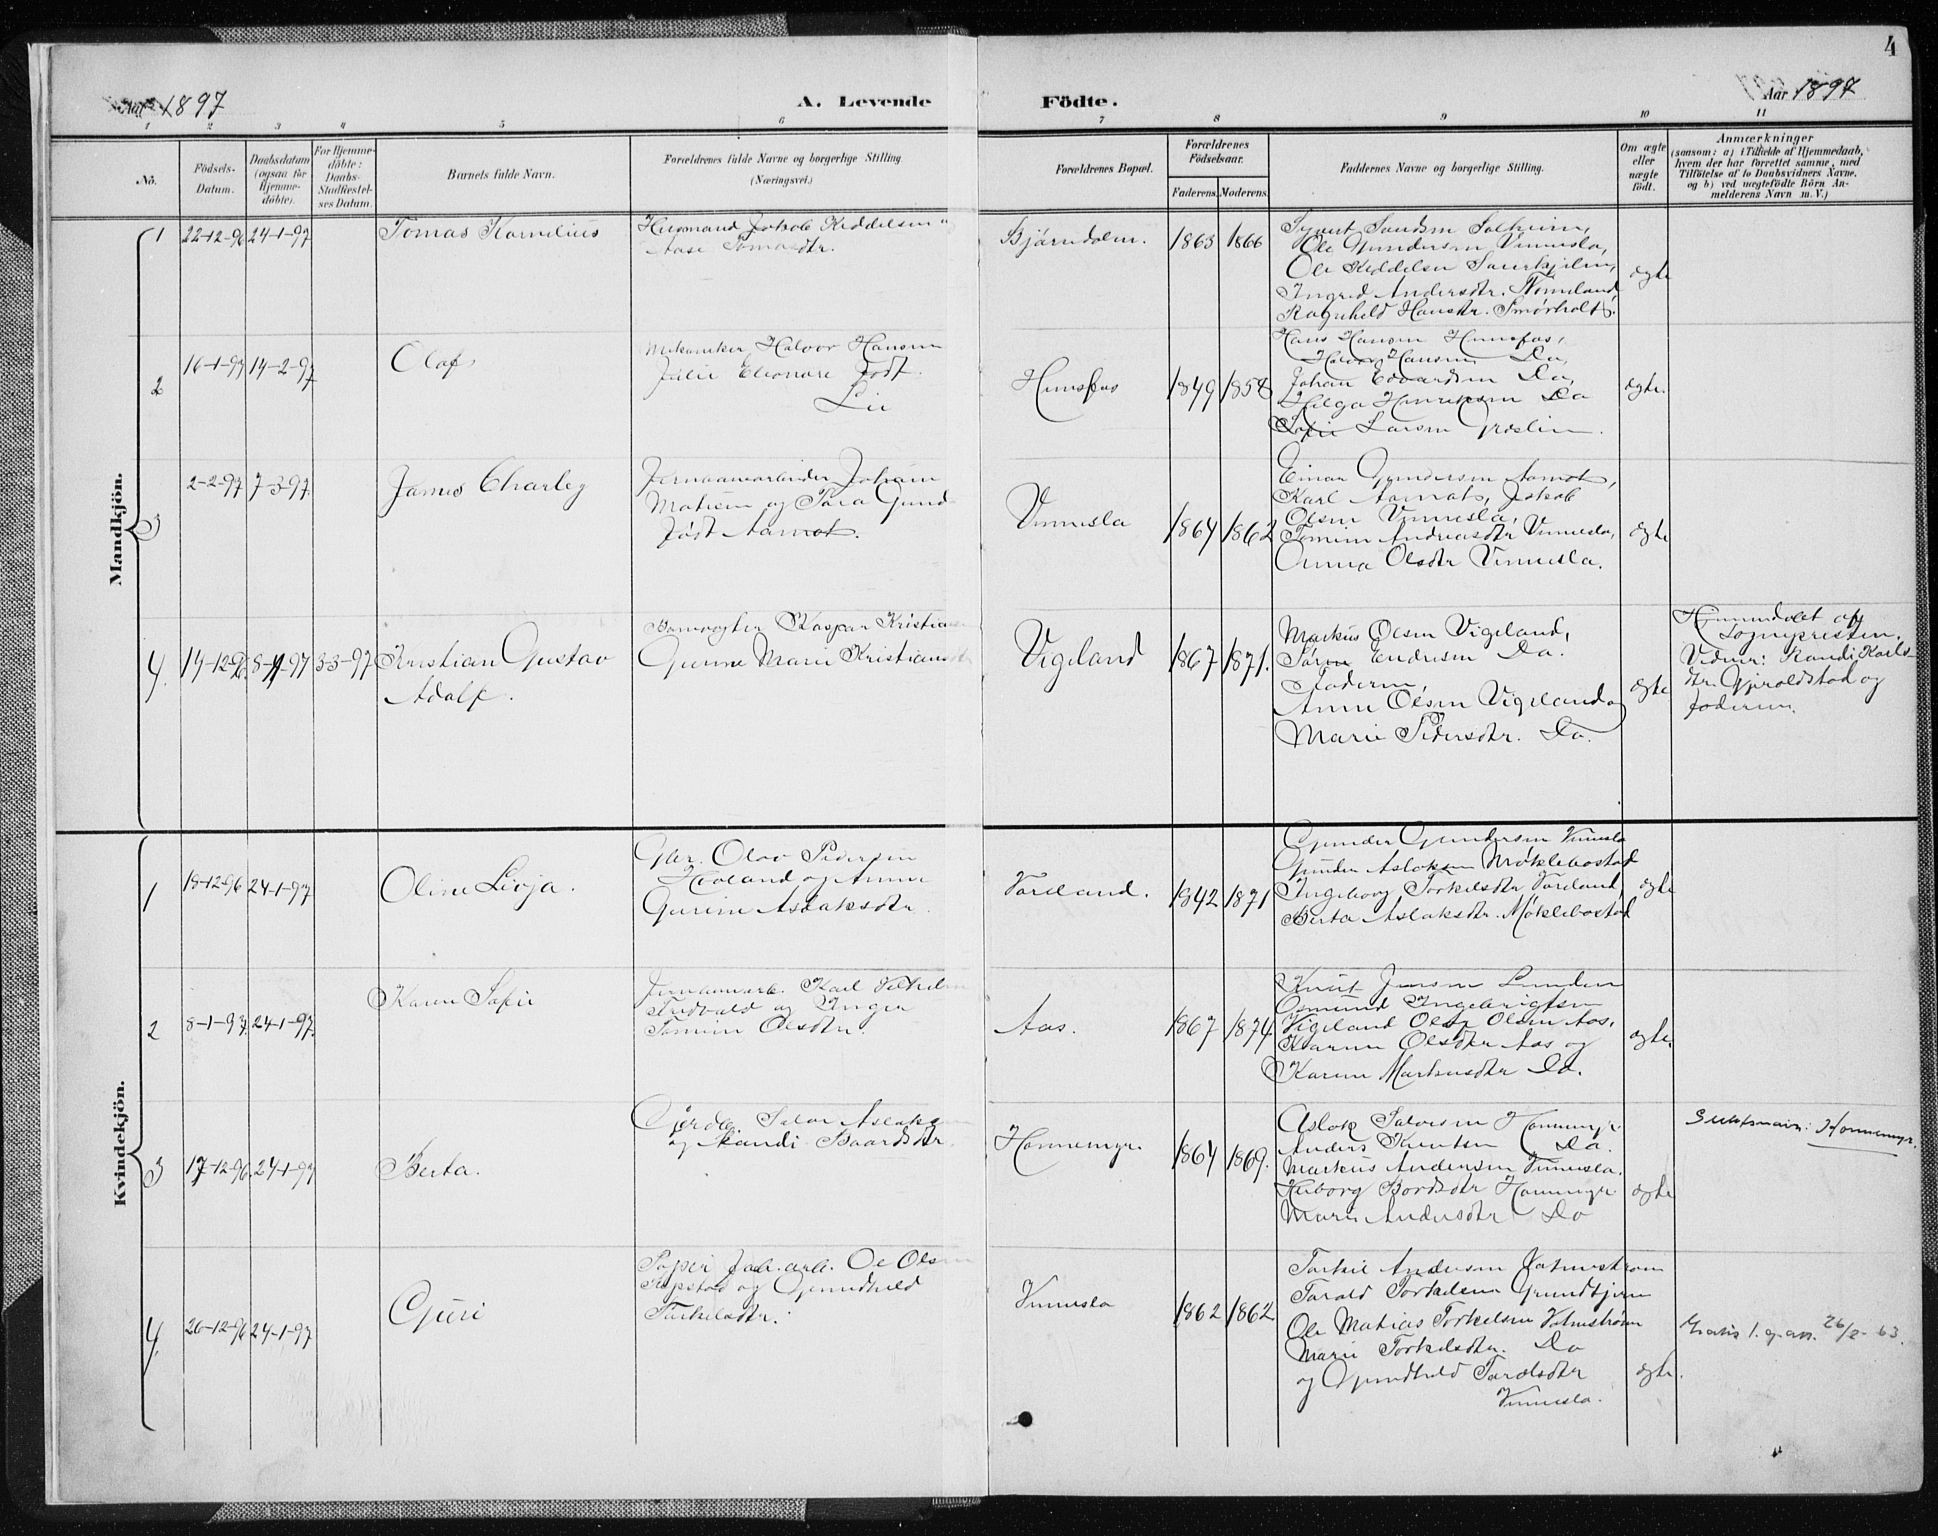 4
Aar 1897
A. Levende
Födte.
Aar 1897
1 2 3 4 5 6 7 8 9 10 11
No.
Födsels-
Datum.
Daabsdatum
(ogsaa for
Hjemme-
döbte).
For Hjemme-
döbte:
Daabs-
Stadfæstel-
ses Datum.
Barnets fulde Navn.
Forældrenes fulde Navne og borgerlige Stilling
(Næringsvei.)
Forældrenes Bopæl.
Forældrenes
Födselsaar.
Faderens.
Moderens.
Faddernes Navne og borgerlige Stilling.
Om ægte
eller
uægte
födt.
Anmærkninger
(saasom: a) i Tilfælde af Hjemmedaab,
hvem der har forrettet samme, med
Tilföielse af to Daabsvidners Navne,
og b) ved uægtefödte Börn An-
melderens Navn m. V.)
Mandkjön.
1
22-12-96
24-1-97
Tomas Kornelius
Jakob Keddelsen og
Aase Tomasdtr.
Bjørndalen.
1863
1866
Solheim,
Ole Gundersen Vennesla,
Ole Keddelsen
Ingrid Andersdtr.
Ragnhild Hansdtr.
ægte
2
16-1-97
14-2-97
Olaf
Mekaniker Halvor Hansen
Julie Eleonore født
Lie
Hunsfos
1849
1858
Hans Hansen Hunsfos,
Hansen Do,
Johan Edvardsen Do,
Helga Henriksen Do
Sofie Larsen
ægte.
3
2-2-97
7-3-97
James Charley
Johan
Matisen og Sara Gund
født Aamot.
Vennesla
1864
1862
Einar Gundersen Aamot,
Karl Aamot, Jakob
Olsen Vennesla,
Tomine Andreasdtr Vennesla,
Anna Olsdtr Vennesla.
ægte
4.
14-12-96
3-3-97
Kristian Gustav
Adolf.
Kaspar Kristiansen
Gunne Marie Kristiansdtr
Vigeland
1867
1871.
Markus Olsen Vigeland,
Søren Endresen Do.
Faderen,
Anne Olsen Vigeland og
Marie Pedersdtr. Do.
ægte
Hjemmedøbt af
Sognepresten.
Vidner: Randi Karls-
dtr. og
Faderen.
Kvindekjön.
1
18-12-96
24-1-97
Oline Livja.
Gbr. Olav Pedersen
Hovland og Anne
Gurine Aslaksdtr.
Voreland.
1842
1871
Gunder Gundersen Vennesla
Gunder Aslaksen Møklebostad
Ingeborg Torkelsdtr Voreland,
Berta Aslaksdtr. Møklebostad
ægte
2
8-1-97.
24-1-97.
Karen Sofie
Karl
og Inger
Tomine Olsdtr.
Aas.
1867
1874
Knut Jensen Lunden
Osmund Ingebrigtsen
Vigeland Ole Olsen Aas,
Karen Olsdtr Aas og
Karen Markusdtr Do.
ægte.
3
17-12-96.
24-1-97
Berta.
Salve Aslaksen
og Randi Baardsdtr.
Hommemyr.
1864
1869.
Aslak Salvesen Hommemyr
Anders Knutsen Do.
Markus Andersen Vennesla.
Bordsdtr Hommemyr
Maren Andersdtr Do
ægte
Slektsnavn: Hommemyr.
4.
26-12-96
24-1-97
Guri
Papir fab. arb. Ole Olsen
og Gundhild
Torkelsdtr.
Vennesla
1862
1862
Torkil Andersen Vatnestrøm
Tarald Torkelsen Grundtjern
Ole Matias Torkelsen Vatnestrøm
Marie Torkelsdtr. Do
og Gundhild Taraldsdtr
Vennesla.
ægte.
Gratis 1. g. att. 26/2-63.